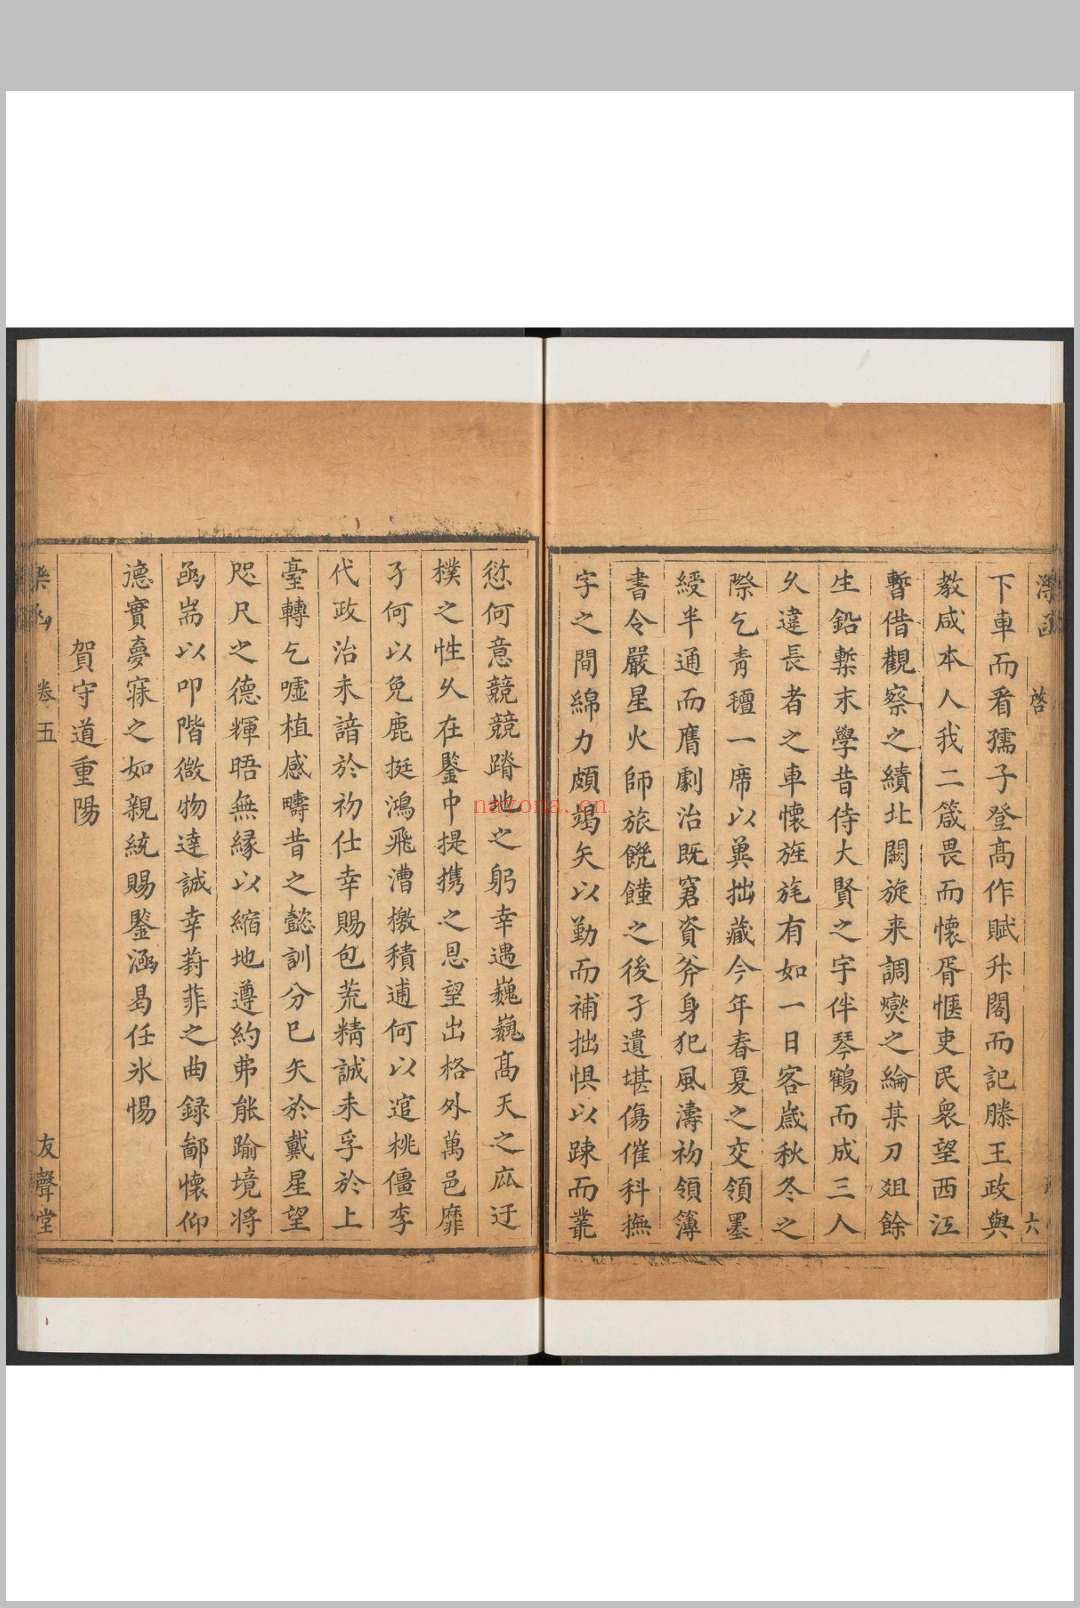 啓
六
下車而看孺子登髙作賦升閣而記滕王政與
教咸本人我二箴畏而懷胥愜吏民衆望西江
暫借觀察之績北闕旋来調爕之綸某刀爼餘
生鉛槧末學昔侍大賢之宇伴琴鶴而成三人
乆違長者之車懷旌旄有如一日客歳秋冬之
際乞青氊一席以兾拙藏今年春夏之交領墨
綬半通而膺劇治既窘資斧身犯風濤初領簿
書令嚴星火師旅饑饉之後孑遺堪傷催科撫
字之間綿力頗竭矢以勤而補拙惧以踈而叢
愆何意競競蹐地之躬幸遇巍巍髙天之庇迂
樸之性乆在鑒中提携之恩望出格外萬邑靡
孑何以免鹿挺鴻飛漕檄積逋何以逭桃僵李
代政治未諳於初仕幸賜包荒精誠未孚於上
臺轉乞噓植感疇昔之懿訓分已矢於戴星望
咫尺之德輝晤無縁以縮地遵約弗能踰境將
凾耑以叩階微物達誠幸葑菲之曲録鄙懷仰
德實夣寐之如親統賜鑒涵曷任氷惕
賀守道重陽
卷五
友聲堂
nazona.cn